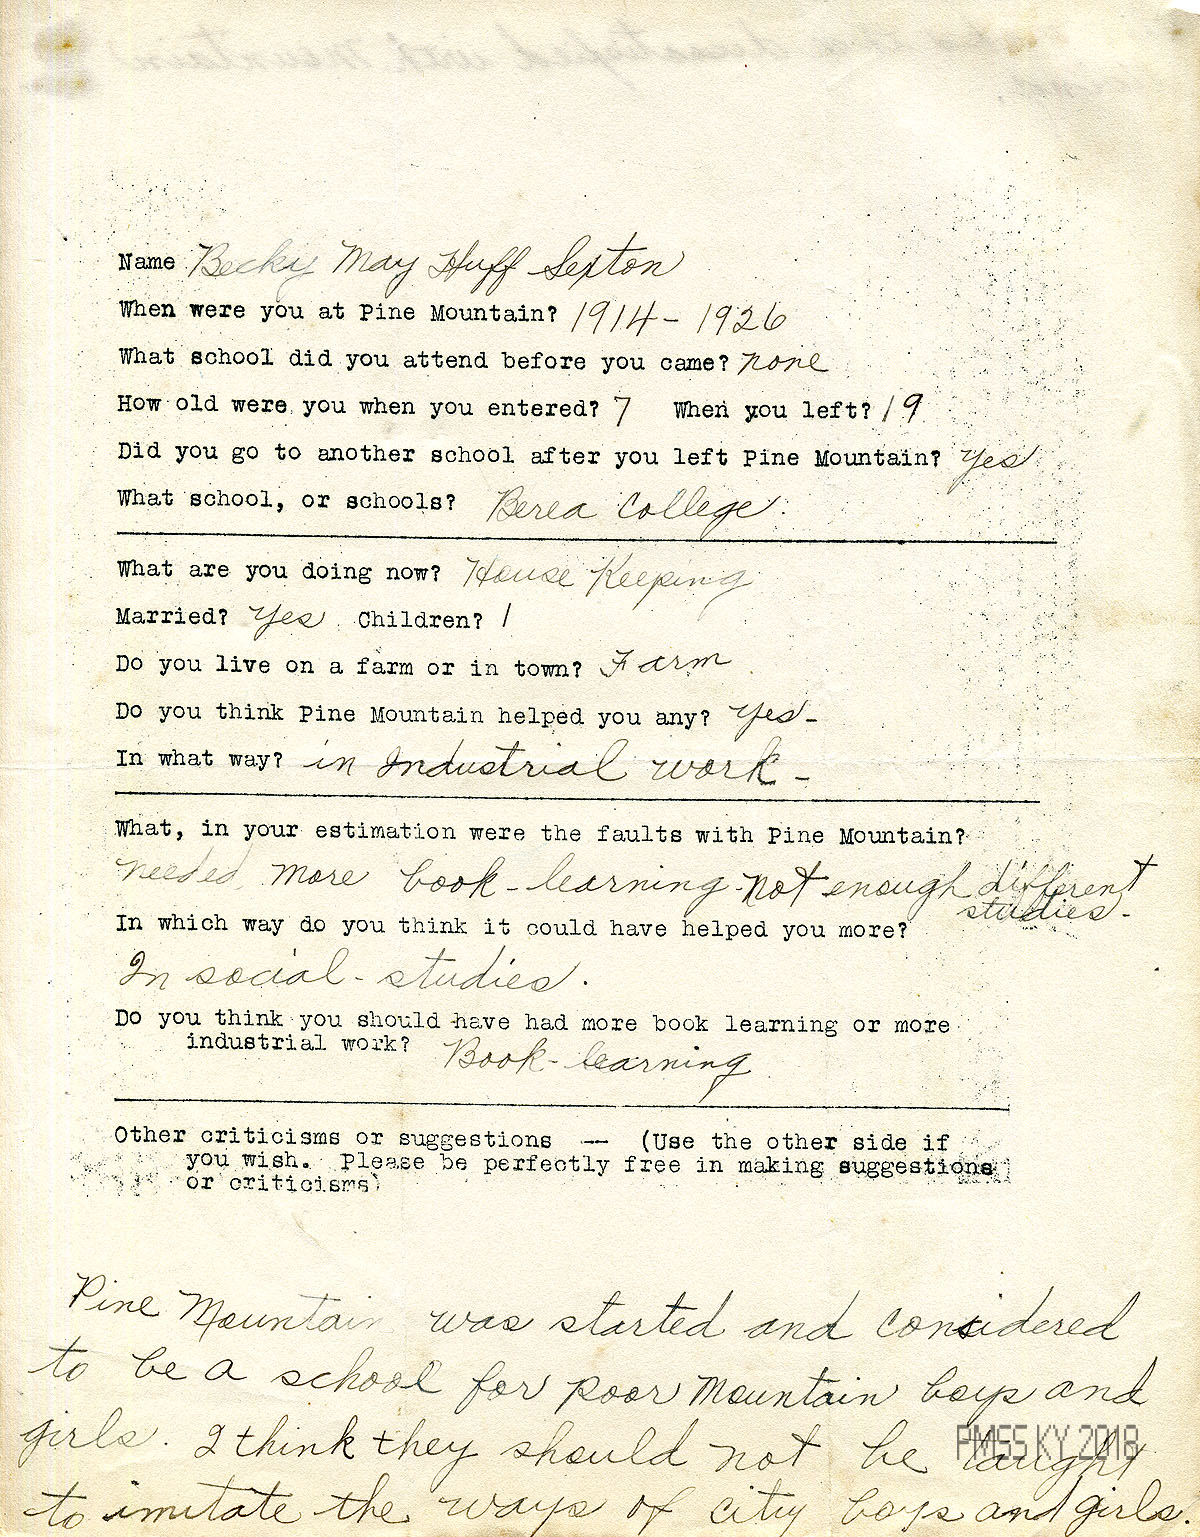 Name Becky May Huff Sexton
When were you at Pine Mountain? 1914 - 1926
What school did you attend before you came? none
How old were you when you entered? 7 When you left? 19
Did you go to another school after you left Pine Mountain? Yes
What school, or schools? Berea College.
What are you doing now? House Keeping
Married? Yes Children? 1
Do you live on a farm or in town? Farm
Do you think Pine Mountain helped you any? Yes-
In what way? in Industrial work -
What, in your estimation were the faults with Pine Mountain?
needed more book-learning-not enough different
studies-
In which way do you think it could have helped you more?
In social-studies.
Do you think you should have had more book learning or more
industrial work? Book-learning
Other criticisms or suggestions -- (Use the other side if
you wish. Please be perfectly free in making suggestions
or criticisms)
Pine Mountain was started and considered
to be a school for poor Mountain boys and
girls. I think they should not be taught
to imitate the ways of city boys and girls.
PMSS KY 2018